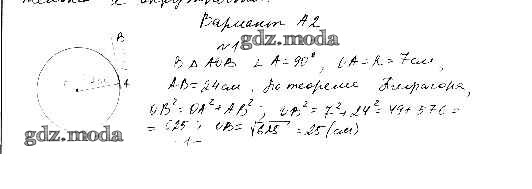 Вариант А2
№1
gdz.moda
В Δ АОВ ∠ А = 90°, ОА = R = 7 см,
АВ = 24 см. По теореме Пифагора,
ОВ² = ОА² + АВ²; ОВ² = 7² + 24² = 49 + 576 =
= 625; ОВ = √625 = 25 (см)
В
А
gdz.moda